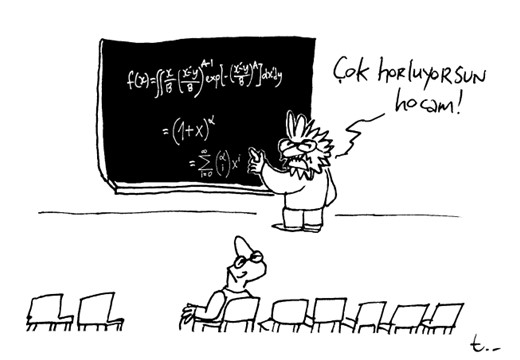 f(x)=∬ x/B (x-y/B)^A-1 exp[-(x-y/B)^A]dxdy
= (1+x)^α
= ∑_{i=0}^{∞} (α i) x^i
Çok horluyorsun
hocam!
t...